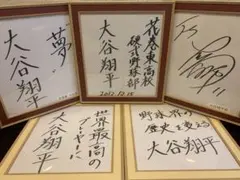 夢
大谷翔平
花巻東高校
硬式野球部
大谷翔平
2012.12.15
世界最高の
プレーヤーに
大谷翔平
野球界の
歴史を変える
大谷翔平